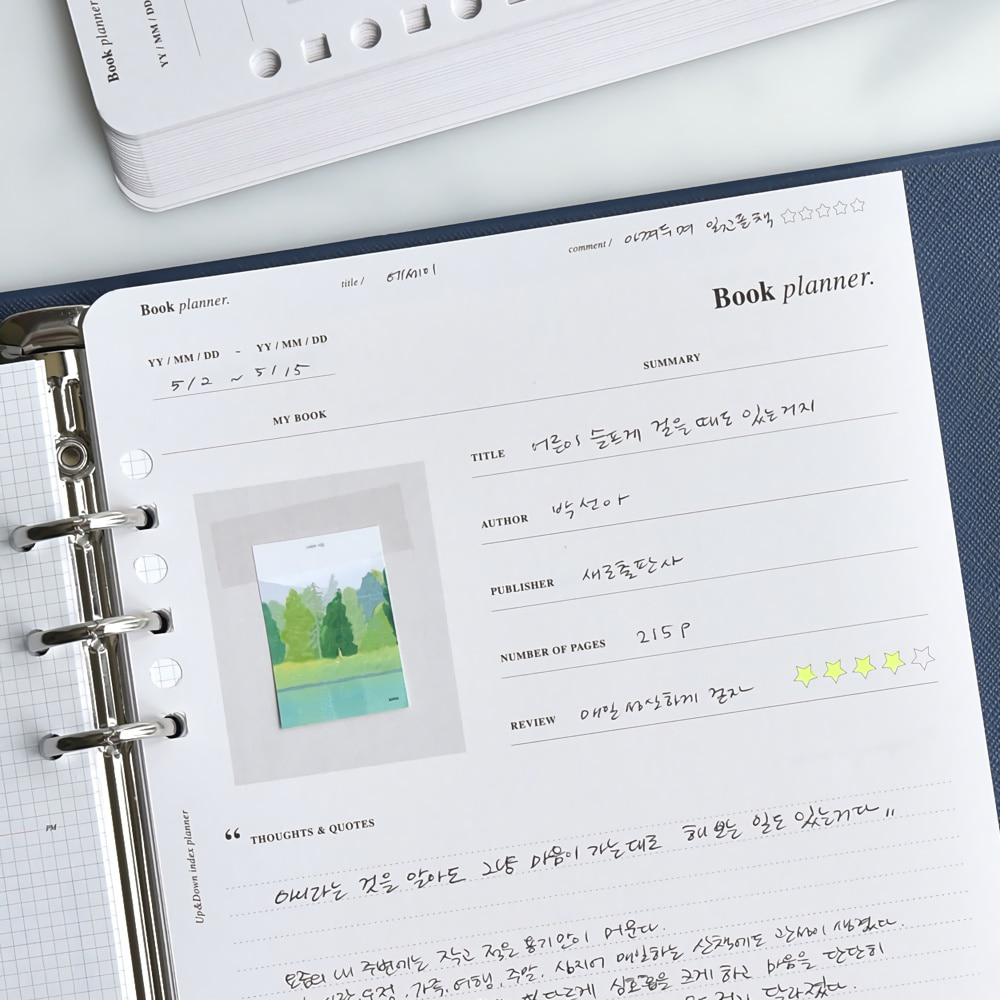 Book planner.
YY / MM / DD
comment / 아껴두며 읽고플책
title / 에세이
Book planner.
Book planner.
YY / MM / DD - YY / MM / DD
5/2 ~ 5/15
MY BOOK
SUMMARY
TITLE 어른이 슬프게 걸을 때도 있는거지
AUTHOR 박선아
PUBLISHER 새로출판사
NUMBER OF PAGES 215 P
REVIEW 매일 성실하게 걷자
PM
Up&Down index planner
“ THOUGHTS & QUOTES
아니라는 것을 알아도 그냥 마음이 가는대로 해 보는 일도 있는거다 "
요즘의 내 주변에는 작고 적은 용기만이 머문다.
우정, 가족, 여행, 주말, 심지어 매일하는 산책에도 관심이 생겼다.
남다르게 심호흡을 크게 하고 마음을 단단히
달라졌다.